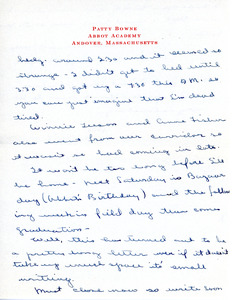 PATTY BOWNE
ABBOT ACADEMY
ANDOVER, MASSACHUSETTS
around 2:30 and it seemed so
strange - I didn't get to bed until
3:30 and got up @ 7:30 this A.M. so
you can just imagine that I'm dead
tired.
and Anne
also went from our corridor so
it wasn't so bad coming in late.
It won't be too long before I'll
be home - next Saturday is Bazaar
day (Abbot's Birthday) and the follow
ing week is field day then comes
graduation -
Well, this has turned out to be
a pretty long letter even if it doesn't
take up much space it's small
writing.
Must close now so write soon